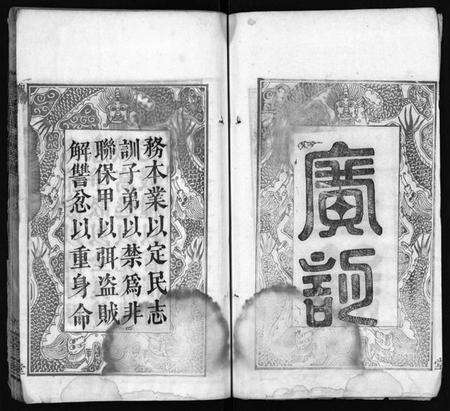 廣訓
務本業以定民志
訓子弟以禁爲非
聯保甲以弭盗賊
解讐忿以重身命